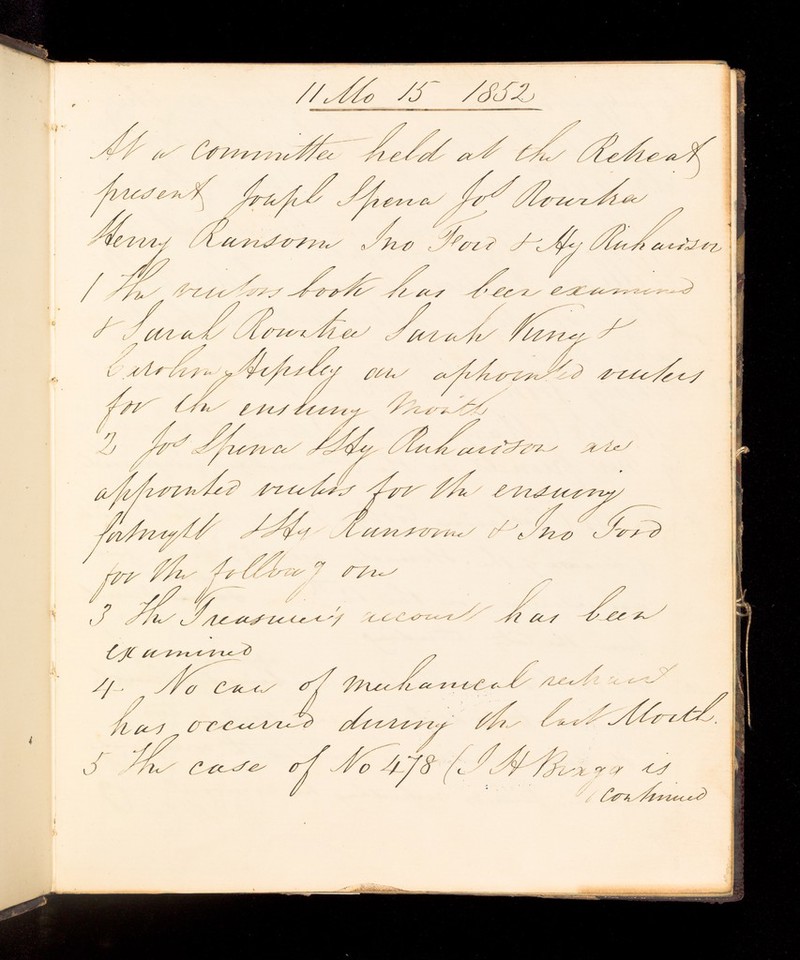 11 Mo 15 1852
At a committee held at the Retreat
present Joseph Spence Jos Rowntree
Henry Ransome Jno Ford & Hy Richardson
1 The visitors book has been examined
& Sarah Rowntree Sarah &
Caroline Hipsley are appointed visitors
for the ensuing Month
2 Jos Spence & Hy Richardson are
appointed visitors for the ensuing
fortnight & Hy Ransome & Jno Ford
for the following one
3 The Treasurer's account has been
examined
4 No case of mechanical restraint
has occurred during the last Month.
5 The case of No 478 (J H is
continued